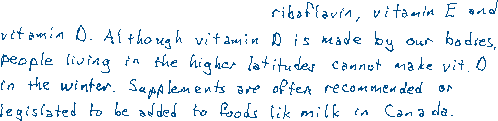 riboflavin, vitamin E and
vitamin D. Although vitamin D is made by our bodies,
people living in the higher latitudes cannot make vit. D
in the winter. Supplements are often recommended or
legislated to be added to foods lik milk in Canada.